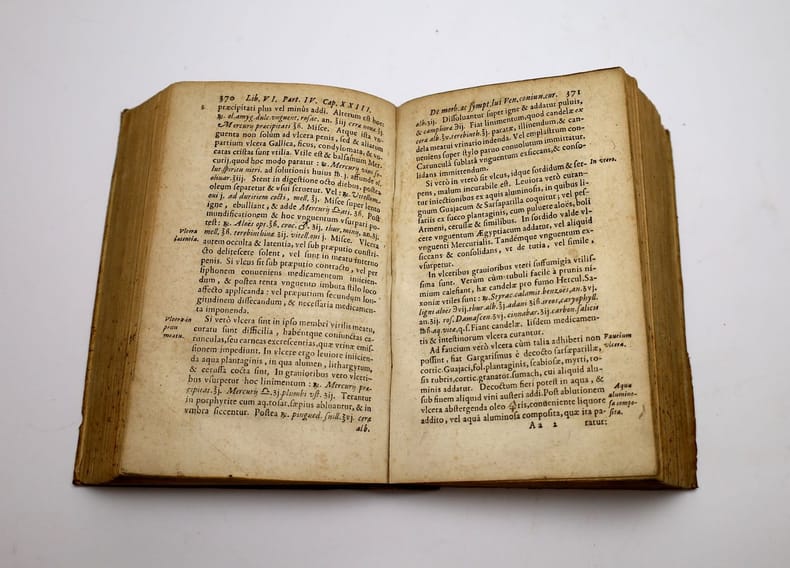 370 Lib. VI. Part. IV. Cap. XXIII.
præcipitati plus vel minùs addi. Alterum est hoc:
℞. ol. amyg. dulc. vnguent. rosac. an. ℥iij ceræ nouæ ℥j.
Mercury præcipitati ℥ß. Misce. Atque ista vnguenta
non solùm ad vlcera penis, sed & aliarum
partium vlcera Gallica, ficos, condylomata, &
catas cristas sunt vtilia. Vtile est & balsamum Mercurij,
quod hoc modo paratur: ℞. Mercurij vini
oliuar. ℥iij. Stent in digestione octo diebus, postea
oleum separetur & vsui seruetur. Vel: ℞. Vitellum
oui j. ad duritiem cocti, mell. ℥j. Misce super lento
igne, ebulliant, & adde Mercurij ß. Post
mundificationem & hoc vnguentum vsurpari potest:
℞. Aloës opt. ℥ß. croc. thur. mirr. an. ℥ij.
mell. ℥ß. terebinthinæ ℥ij. vitell. oui j. Misce. Vlcera
Vlcera
latentia.
autem occulta & latentia, vel sub præputio constricto
delitescere solent, vel sunt in meatu interno
penis. Si vlcus sit sub præputio contracto, vel per
siphonem conueniens medicamentum iniiciendum,
& postea tenta vnguento imbuta stilo loco
affecto applicanda: vel præputium secundum longitudinem
dissecandum, & necessaria medicamenta
imponenda.
Vlcera in
meatu.
Si verò vlcera sint in ipso membri virilis meatu,
curatu sunt difficilia, habéntque coniunctas carunculas,
seu carneas excrescentias, quæ vrinæ emissionem
impediunt. In vlcere ergo leuiore iniicienda
aqua plantaginis, in qua alumen, lithargyrum,
& cerussa cocta sint. In grauioribus vero vlceribus
vsurpetur hoc linimentum: ℞. Mercurij præcipitat.
℥j. Mercurij ℥j plumbi vst. ℥ij. Terantur
in porphyrite cum aq. rosat. sæpius abluantur, & in
vmbra siccentur. Postea ℞. pingued. suill. ℥vj. ceræ
alb.
De morb. ac sympt. lui Ven. coniun. cur. 371
alb. ℥ij. Dissoluantur super igne & addatur puluis,
& camphoræ ℈ij. Fiat linimentum, quod candelæ ex
cera alb. terebinth. ℥j. paratæ, illinendum, & candela
meatui vrinatio indenda. Vel emplastrum conueniens
super stylo parvo conuolutum immittatur.
Caruncula sublata vnguentum exsiccans, & consolidans
immittendum.
In vtero.
Si verò in vtero sit vlcus, idque sordidum & serpens,
malum incurabile est. Leuiora verò curantur
iniectionibus ex aquis aluminosis, in quibus lignum
Guajacum & Sarsaparilla coquitur; vel pessariis
ex succo plantaginis, cum puluere aloës, boli
Armeni, cerussæ & similibus. In sordido valde vlcere
vnguentum Ægyptiacum addatur, vel aliquid
vnguenti Mercurialis. Tandémque vnguentum exsiccans
& consolidans, vt de tutia, vel simile,
vsurpetur.
In vlceribus grauioribus vteri suffumigia vtilissima
sunt. Verùm cùm tubuli facilè à prunis nimium
calefiant, hæ candelæ pro fumo Hercul. Saxoniæ
vtiles sunt: ℞. Styrac. calamit. benzoës, an. ℥ij.
ligni aloës ℈vj. thur. alb. ℥j. ladani ℥iß. areos, caryophyll.
an. ℥ij. ros. Damascen. ℥vj. cinnabar. ℥ij. carbon. salicis
℔ß. aquæ, q. s. Fiant candelæ. Iisdem medicamentis
& intestinorum vlcera curantur.
Faucium
vlcera.
Ad faucium verò vlcera cùm talia adhiberi non
possint, fiat Gargarismus è decocto sarsæparillæ,
cortic. Guajaci, fol. plantaginis, scabiosæ, myrti, rosis
rubris, cortic. granator. sumach, cui aliquid aluminis
addatur. Decoctum fieri potest in aqua, &
sub finem aliquid vini austeri addi. Post ablutionem
Aqua
aluminosa
composita.
vlcera abstergenda oleo ris, conueniente liquore
addito, vel aqua aluminosa composita, quæ ita pa-
Aa 2 ratur: